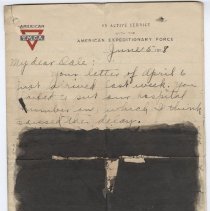 AMERICAN
Y.M.C.A.
ON ACTIVE SERVICE
WITH THE
AMERICAN EXPEDITIONARY FORCE
June 5 1918
My dear
Your letter of April 6
just arrived last week. You
failed to put our hospital
number on, which I think
caused the delay.